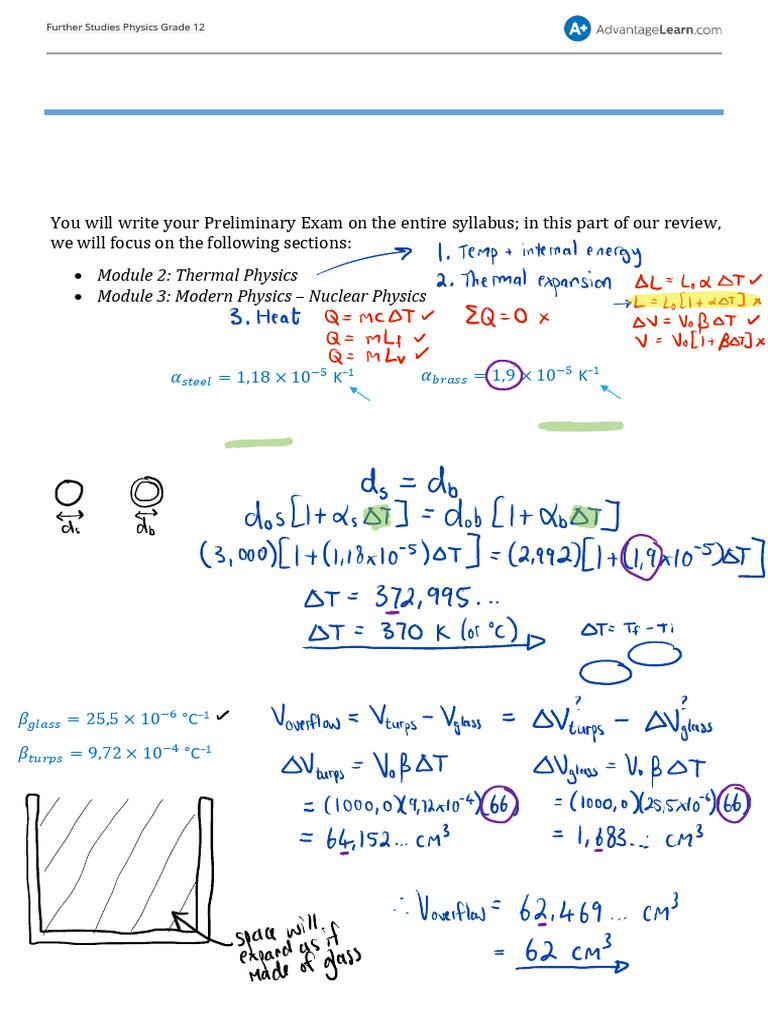 Further Studies Physics Grade 12
A+ AdvantageLearn.com
You will write your Preliminary Exam on the entire syllabus; in this part of our review,
we will focus on the following sections:
• Module 2: Thermal Physics
• Module 3: Modern Physics – Nuclear Physics
1. Temp + internal energy
2. Thermal expansion
ΔL = L₀αΔT ✓
→ L = L₀[1+αΔT] ×
ΔV = V₀βΔT ✓
V = V₀[1+βΔT] ×
3. Heat
Q = mcΔT ✓
Q = mLf ✓
Q = mLv ✓
ΣQ = 0 ×
α_steel = 1,18 × 10⁻⁵ K⁻¹
α_brass = 1,9 × 10⁻⁵ K⁻¹
ds
db
ds = db
d₀s[1+αsΔT] = d₀b[1+αbΔT]
(3,000)[1+(1,18×10⁻⁵)ΔT] = (2,992)[1+(1,9×10⁻⁵)ΔT]
ΔT = 372,995...
ΔT = 370 K (or °C)
ΔT = Tf - Ti
β_glass = 25,5 × 10⁻⁶ °C⁻¹ ✓
β_turps = 9,72 × 10⁻⁴ °C⁻¹
Voverflow = Vturps - Vglass = ΔV?turps - ΔV?glass
ΔVturps = V₀βΔT
= (1000,0)(9,72×10⁻⁴)(66)
= 64,152... cm³
ΔVglass = V₀βΔT
= (1000,0)(25,5×10⁻⁶)(66)
= 1,683... cm³
space will
expand as if
made of glass
∴ Voverflow = 62,469... cm³
= 62 cm³